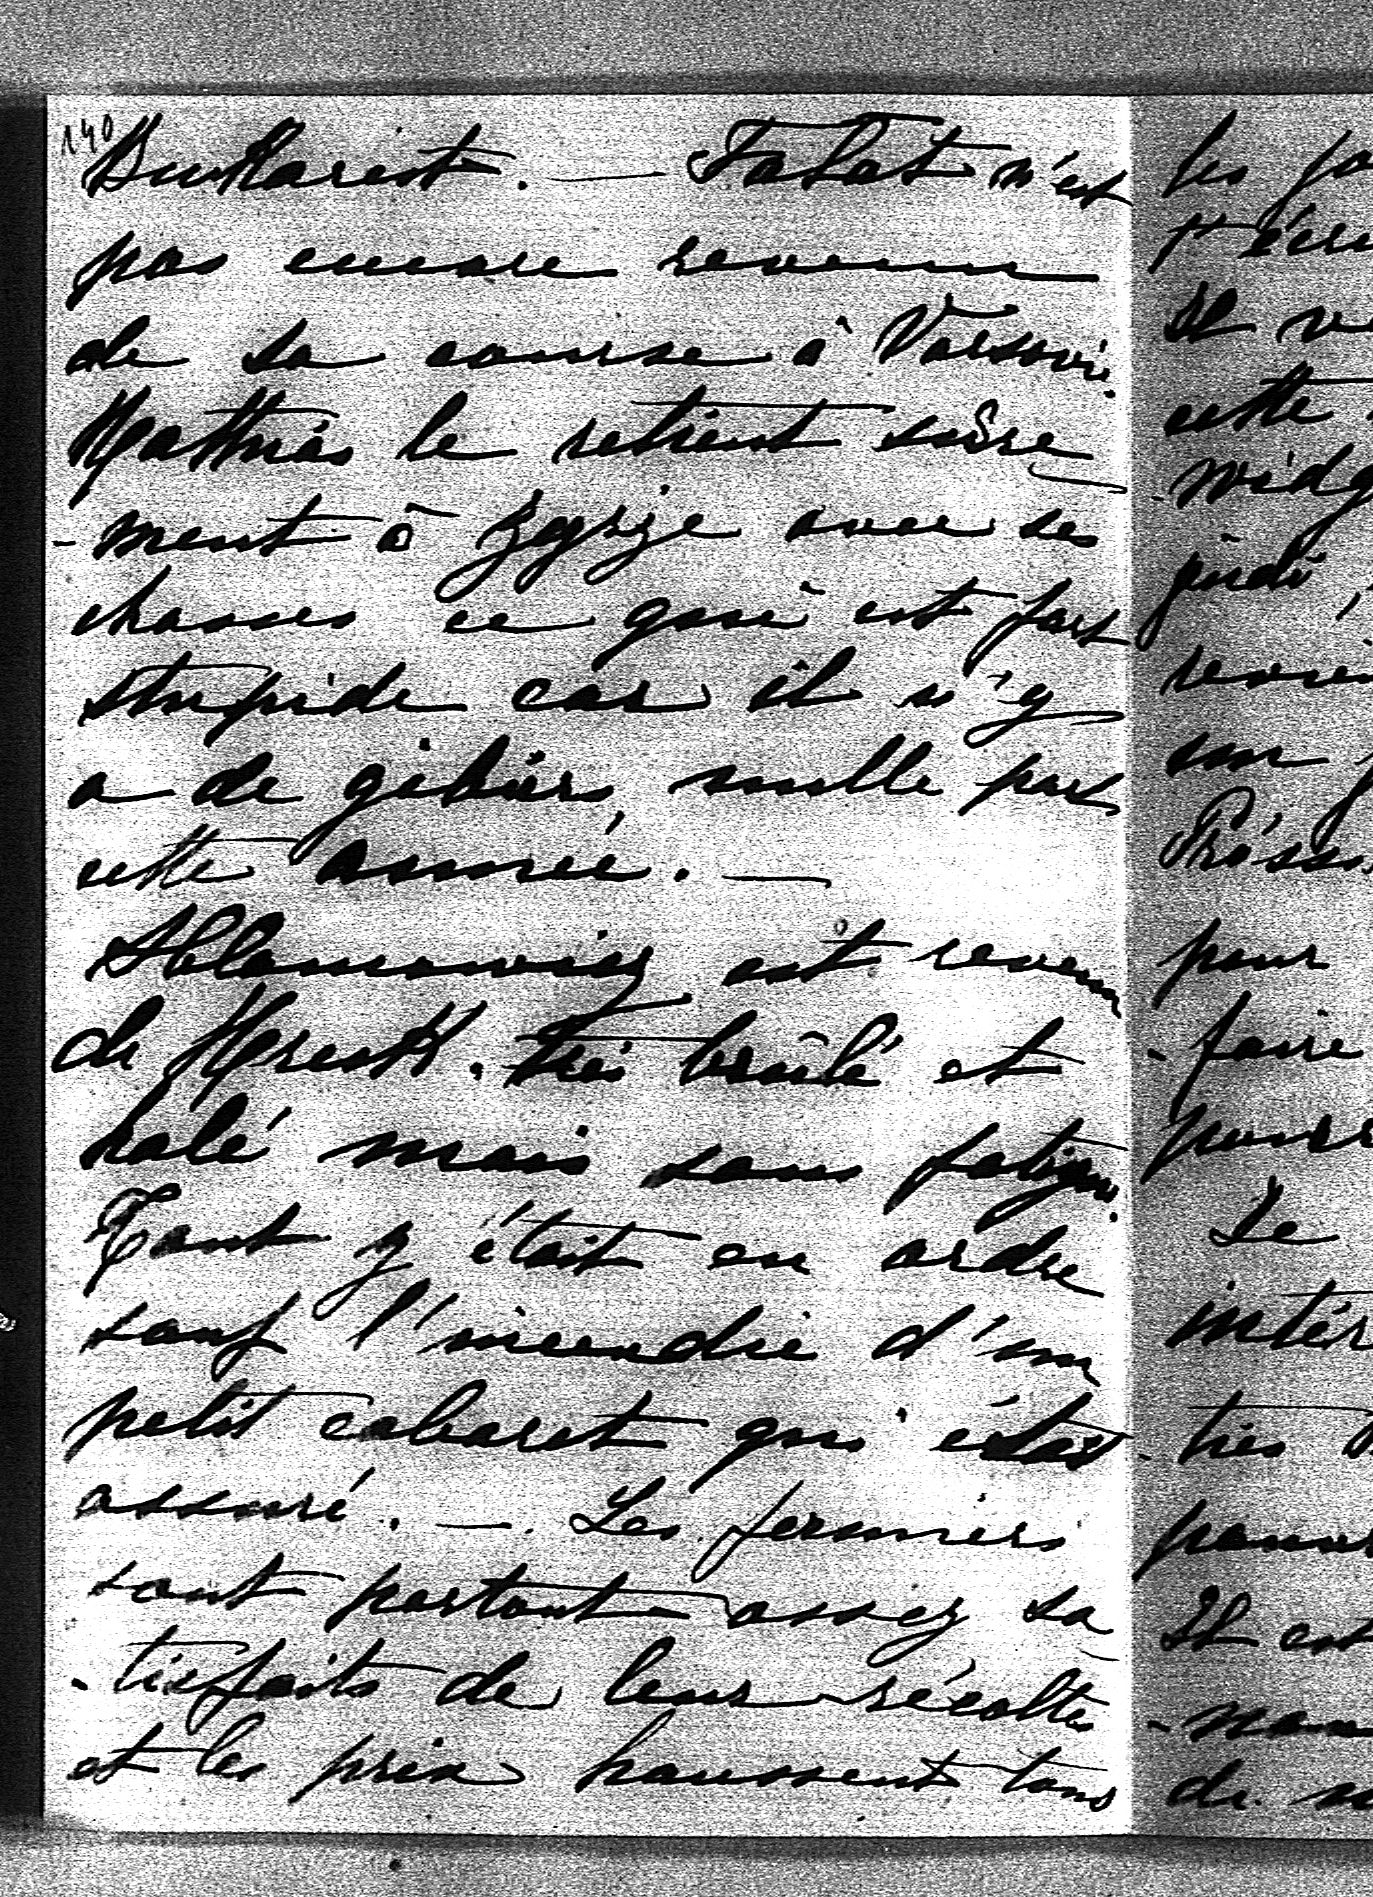 140
Bukarest. — Fatat n'est
pas encore revenu
de sa course à Varsovie.
Mathias le retient sûre
-ment à Zegrze avec ses
chasses ce qui est fort
stupide car il n'y
a de gibier nulle part
cette année. —
est revenu
de très brûlé et
halé mais sans fatigue.
Tout y était en ordre
sauf l'incendie d'un
petit cabaret qui était
assuré. —. Les fermiers
sont partout assez sa
-tisfaits de leur récoltes
et les prix haussent tous
les
t'écri
Il
cette
-widg
jeudi,
revien
un
pour
-faire
pour
Le
intér
-très
pouvo
Il est
de